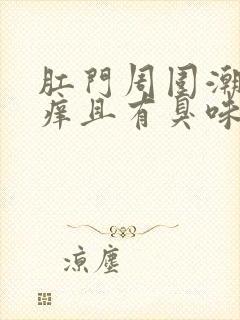 肛門周围潮
痒且有臭味
凉塵